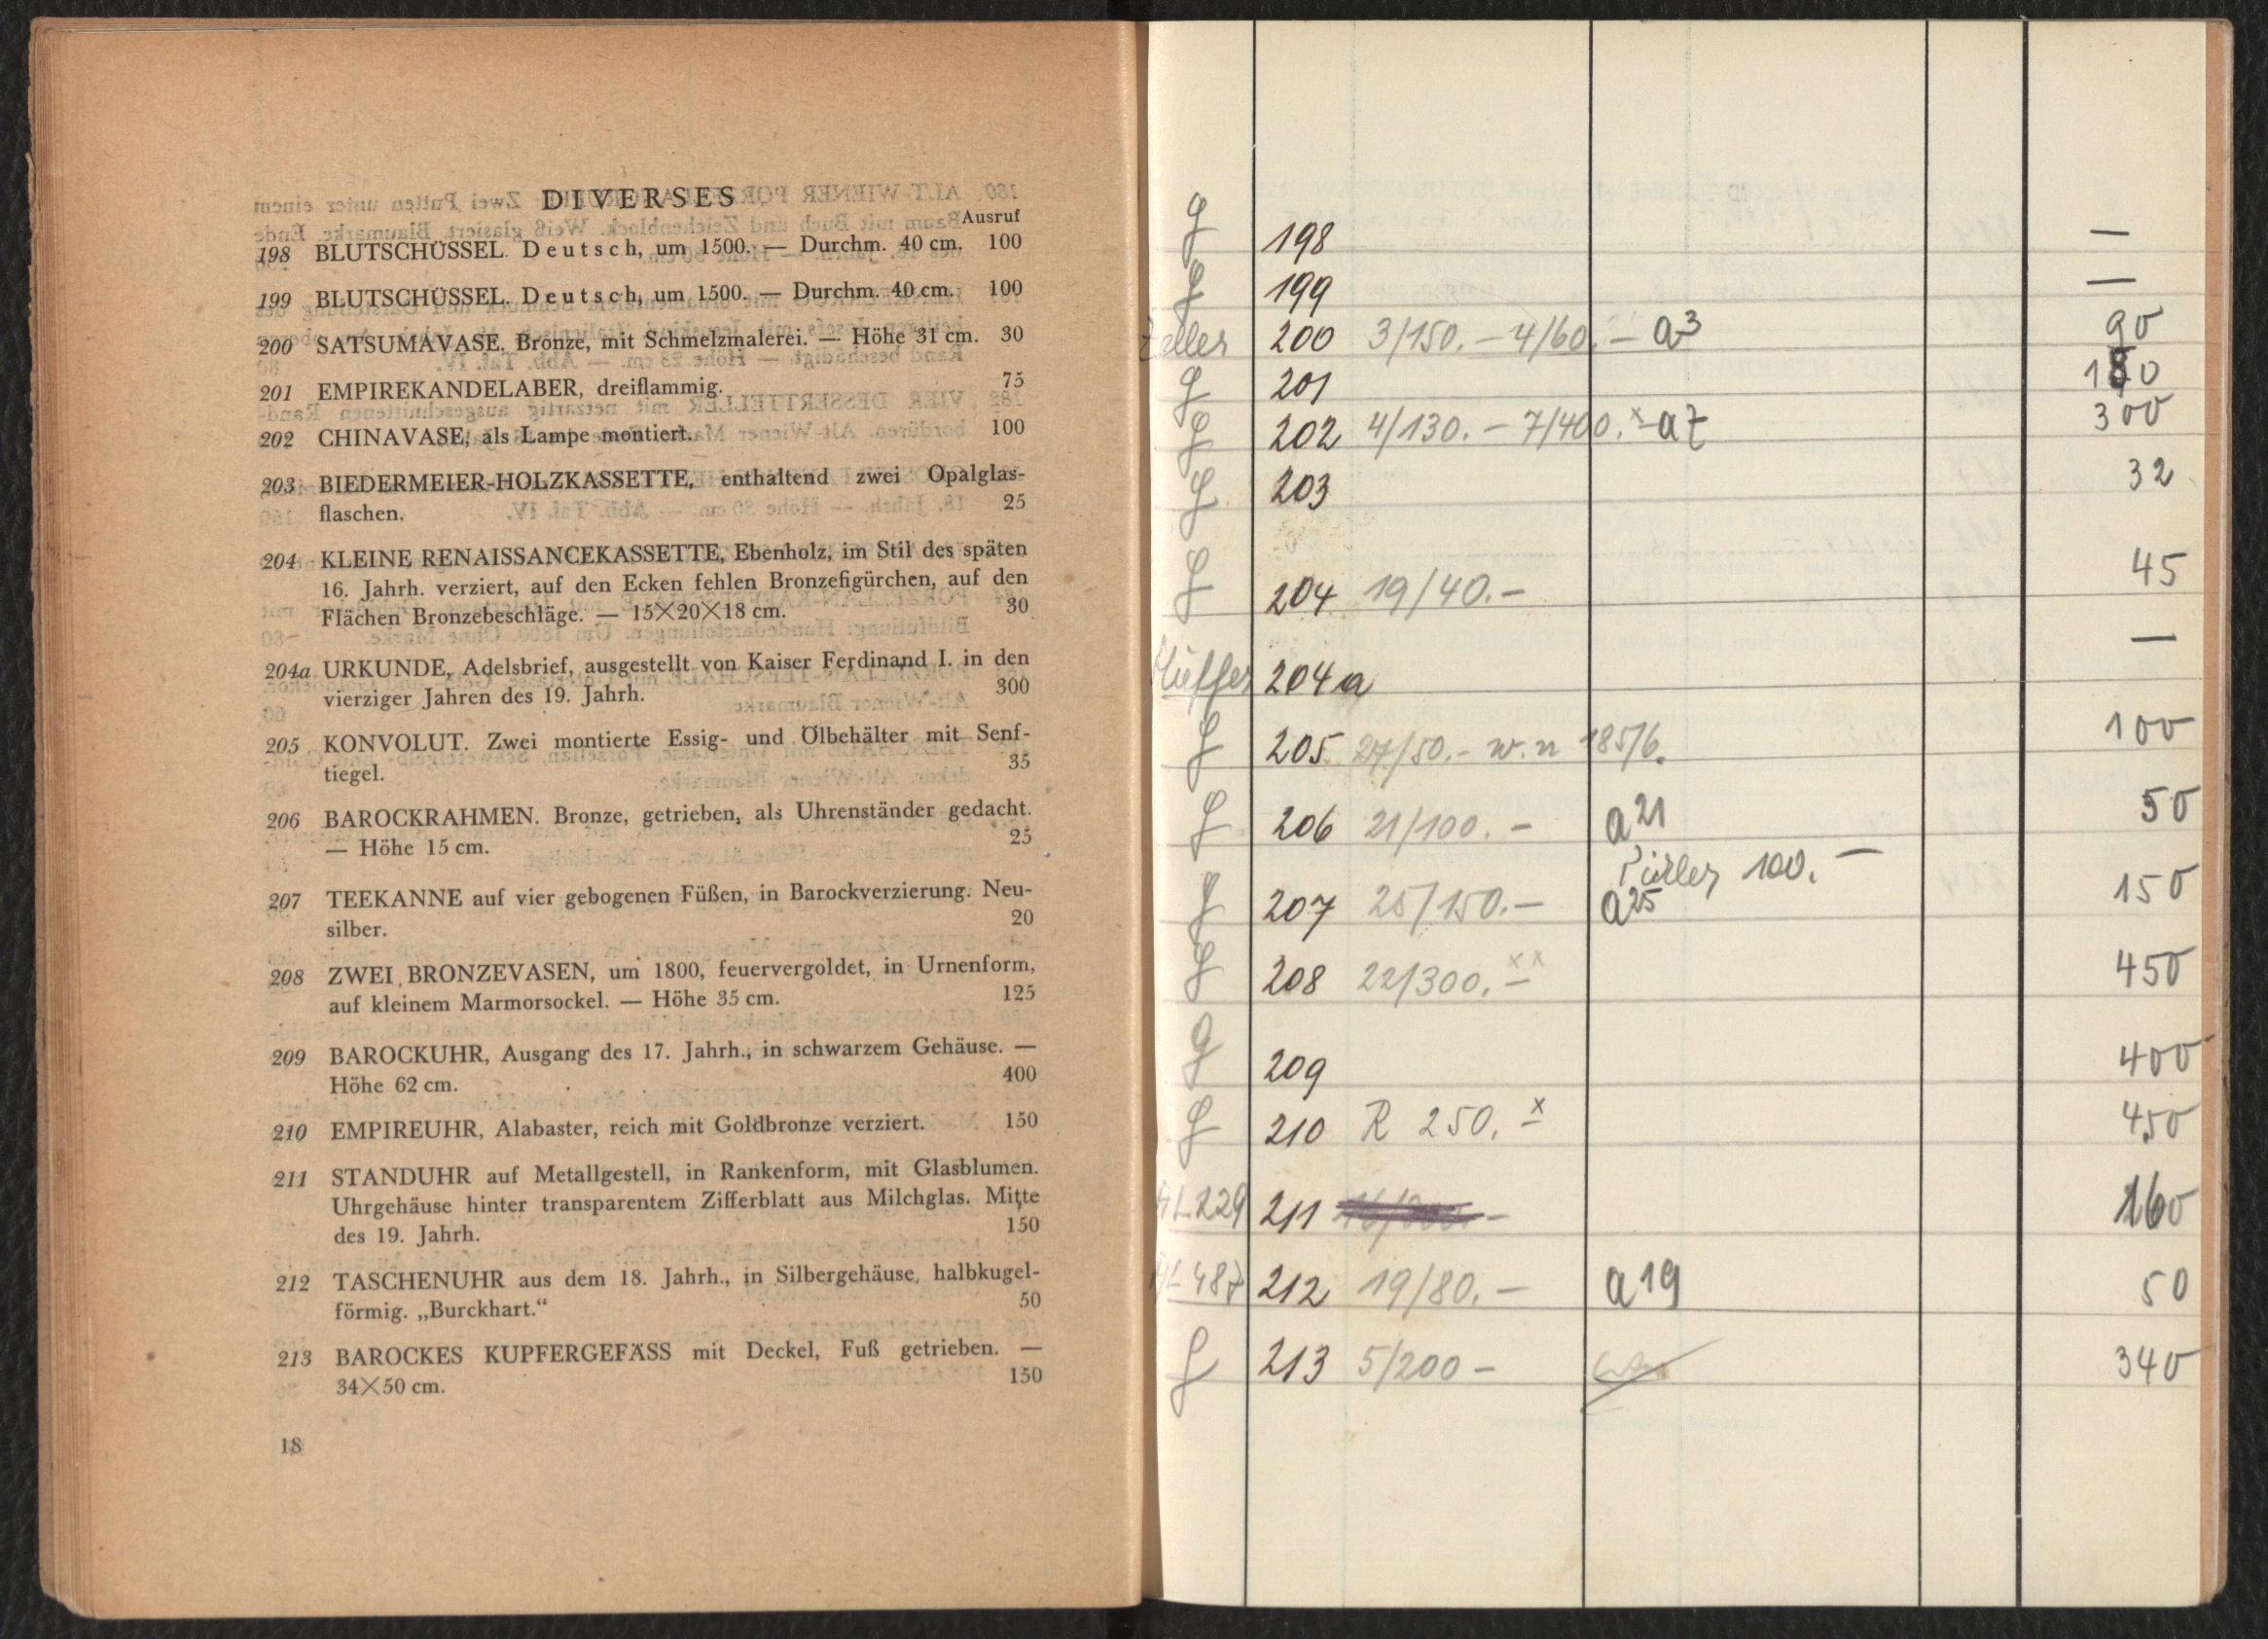 DIVERSES
Ausruf
198 BLUTSCHÜSSEL. Deutsch, um 1500. — Durchm. 40 cm. 100
199 BLUTSCHÜSSEL. Deutsch, um 1500. — Durchm. 40 cm. 100
200 SATSUMAVASE. Bronze, mit Schmelzmalerei. — Höhe 31 cm. 30
201 EMPIREKANDELABER, dreiflammig. 75
202 CHINAVASE, als Lampe montiert. 100
203 BIEDERMEIER-HOLZKASSETTE, enthaltend zwei Opalglas-
flaschen. 25
204 KLEINE RENAISSANCEKASSETTE, Ebenholz, im Stil des späten
16. Jahrh. verziert, auf den Ecken fehlen Bronzefigürchen, auf den
Flächen Bronzebeschläge. — 15×20×18 cm. 30
204a URKUNDE, Adelsbrief, ausgestellt von Kaiser Ferdinand I. in den
vierziger Jahren des 19. Jahrh. 300
205 KONVOLUT. Zwei montierte Essig- und Ölbehälter mit Senf-
tiegel. 35
206 BAROCKRAHMEN. Bronze, getrieben, als Uhrenständer gedacht.
— Höhe 15 cm. 25
207 TEEKANNE auf vier gebogenen Füßen, in Barockverzierung. Neu-
silber. 20
208 ZWEI BRONZEVASEN, um 1800, feuervergoldet, in Urnenform,
auf kleinem Marmorsockel. — Höhe 35 cm. 125
209 BAROCKUHR, Ausgang des 17. Jahrh., in schwarzem Gehäuse. —
Höhe 62 cm. 400
210 EMPIREUHR, Alabaster, reich mit Goldbronze verziert. 150
211 STANDUHR auf Metallgestell, in Rankenform, mit Glasblumen.
Uhrgehäuse hinter transparentem Zifferblatt aus Milchglas. Mitte
des 19. Jahrh. 150
212 TASCHENUHR aus dem 18. Jahrh., in Silbergehäuse, halbkugel-
förmig. „Burckhart.“ 50
213 BAROCKES KUPFERGEFÄSS mit Deckel, Fuß getrieben. —
34×50 cm. 150
18
198 —
199 —
200 3/150.- 4/60.- a3 90
201
202 4/130.- 7/400.- x a7 300
203 32
204 19/40.- 45
204a —
205 27/50.- w.n 185/6. 100
206 21/100.- a21 50
100.-
207 25/150.- a25 150
208 22/300.- xx 450
209 400
210 R 250.- x 450
229 211 160
487 212 19/80.- a19 50
213 5/200- 340